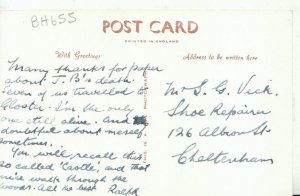 BH655
POST CARD
PRINTED IN ENGLAND
With Greetings
Address to be written here
Many thanks for paper
about J. B's death.
Seven of us travelled to
Gloster. I'm the only
one still alive. And
doubtful about meself
sometimes.
You will recall this
so called 'Castle', and that
nice walk through the
woods. All the best Ralph
Mr S. G. Vick.
Shoe Repairer
126 St
Cheltenham